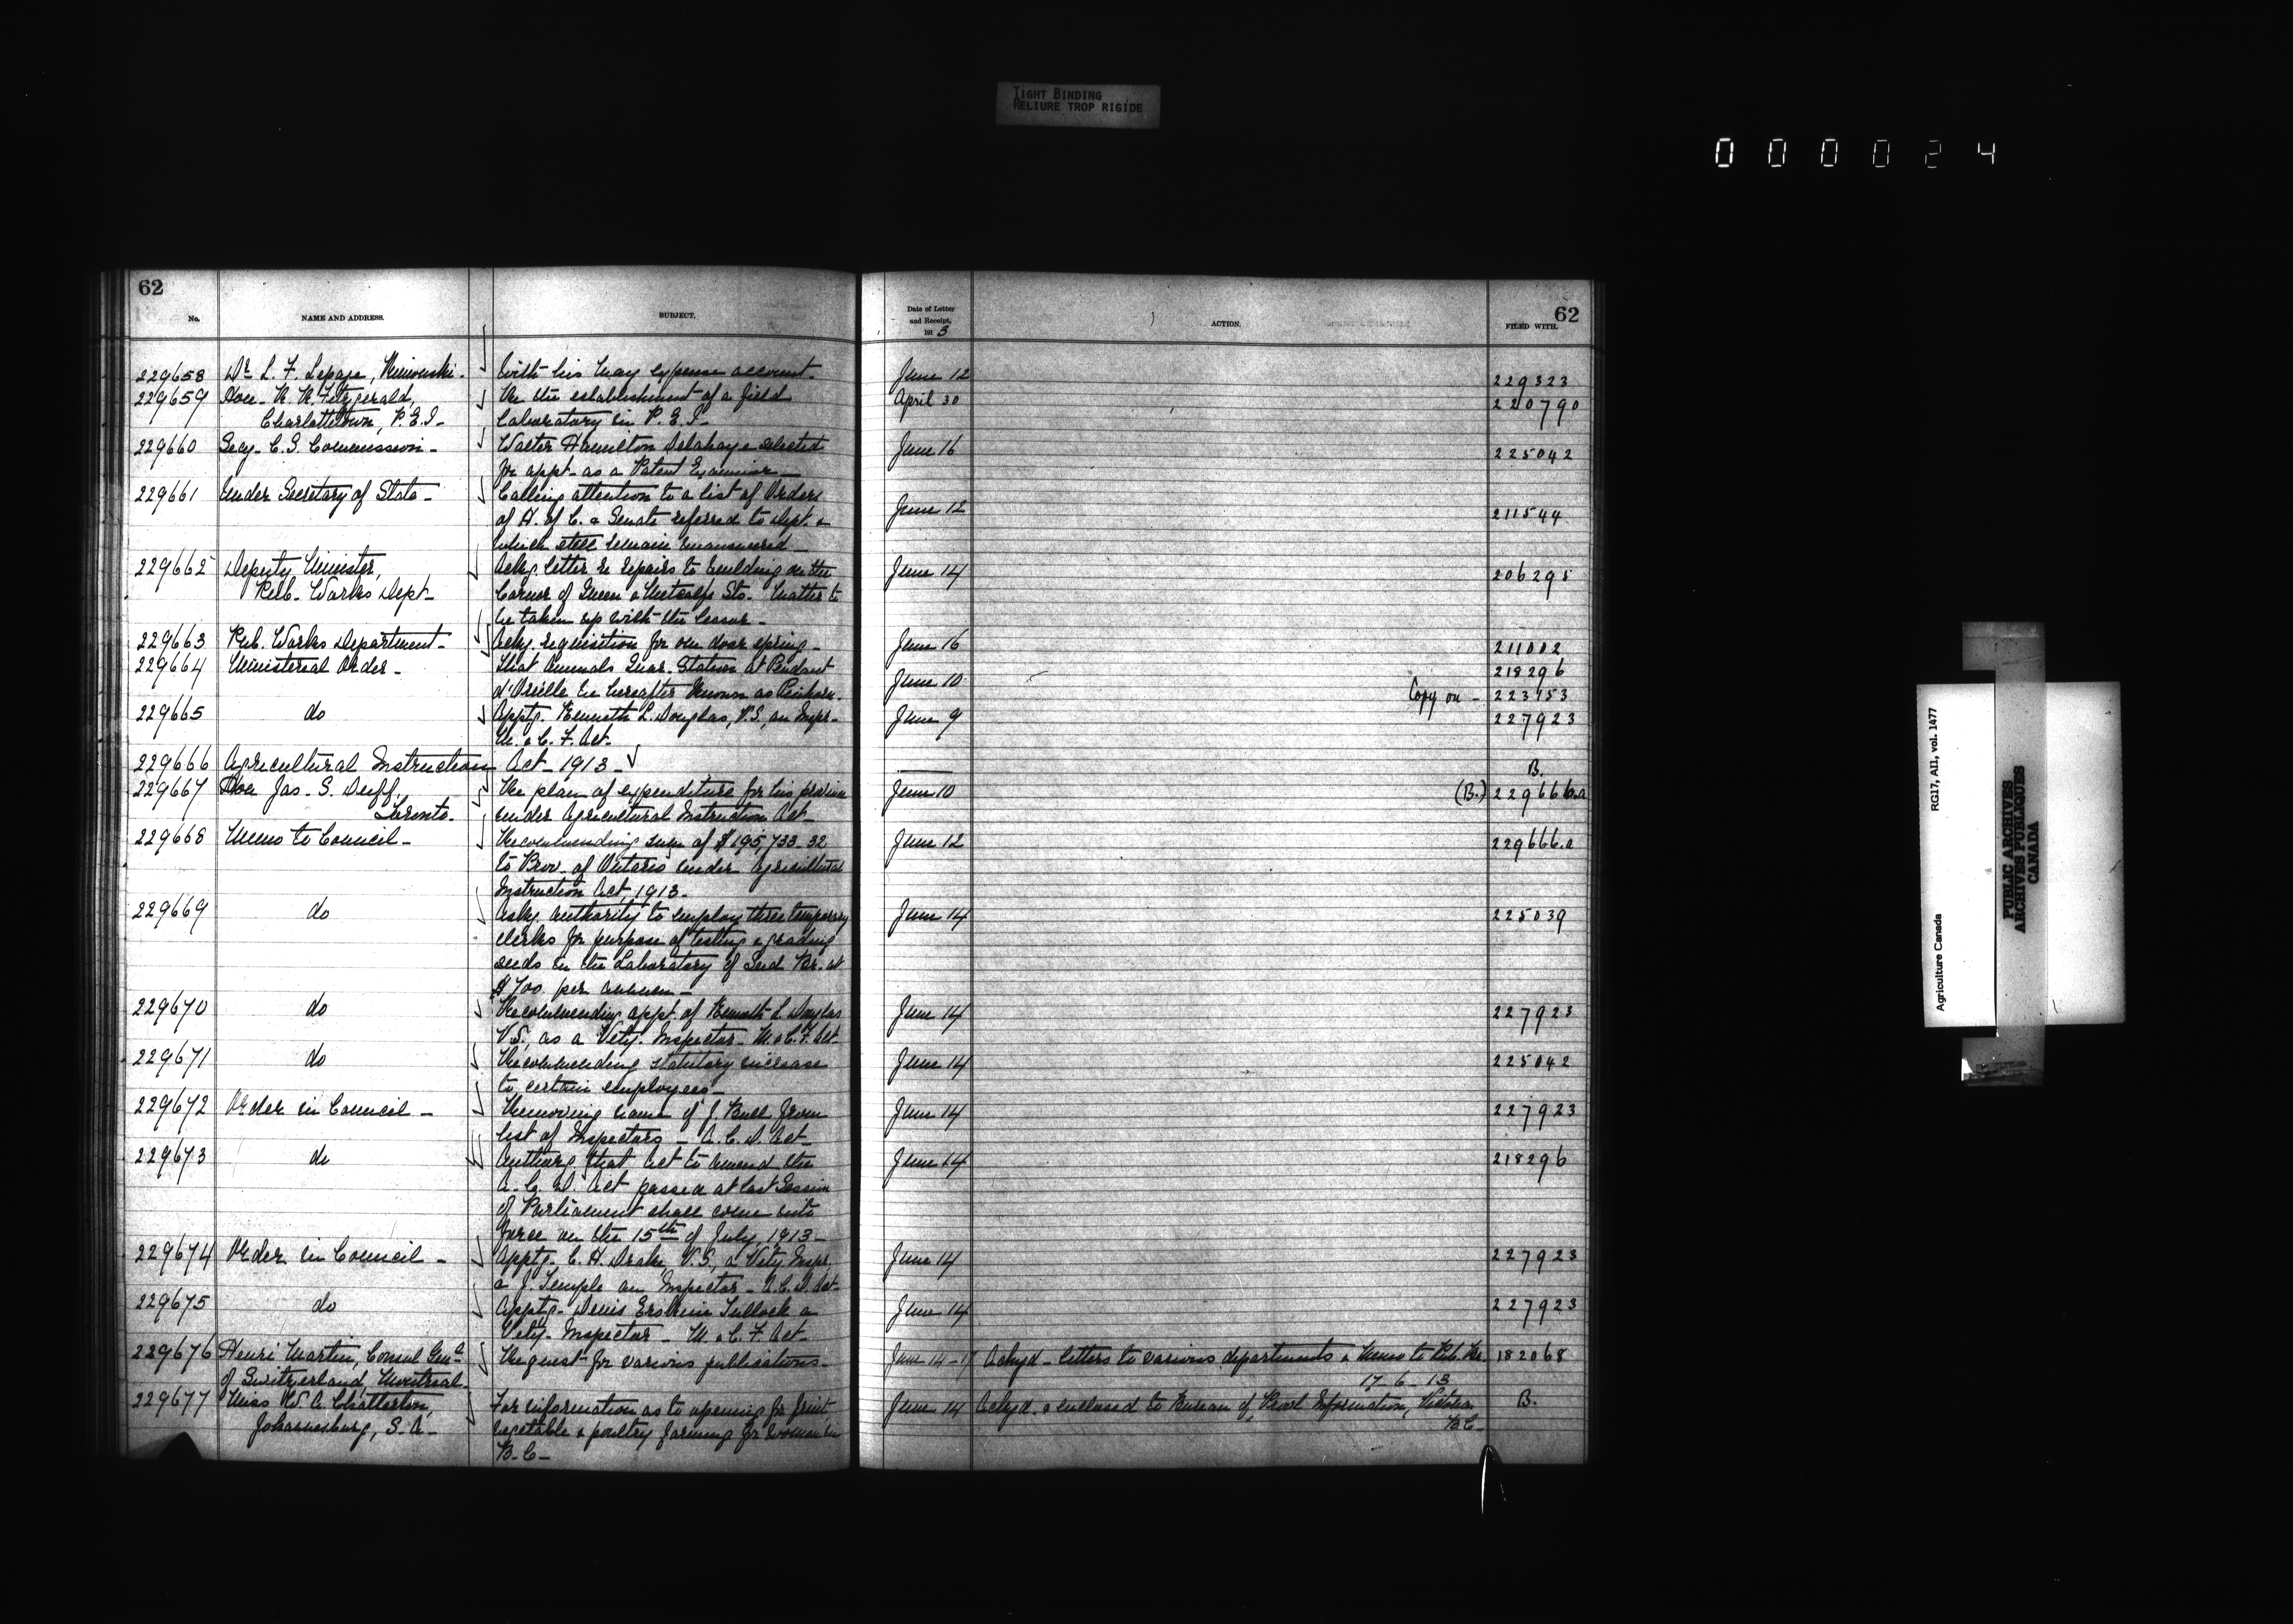 TIGHT BINDING
RELIURE TROP RIGIDE
000024
62
No. NAME AND ADDRESS. SUBJECT.
229658 Dr. L. F. Lepage, Rimouski. With his May expense account.
229659 Hon. R. R. Fitzgerald, Re the establishment of a field
Charlottetown, P.E.I. Laboratory in P.E.I.
229660 Secy. C.S. Commission. Walter Hamilton Delahaye selected
for appt. as a Patent Examiner
229661 Under Secretary of State Calling attention to a list of Orders
of H. of C. & Senate referred to Dept. &
which still remain unanswered
229662 Deputy Minister, Ackg letter re repairs to building on the
Pub. Works Dept. Corner of Queen & Metcalfe Sts. Matter to
be taken up with the lessor.
229663 Pub. Works Department. Ackg requisition for one door spring.
229664 Ministerial Order. That Animals Quar. Station at Pendant
d'Oreille be hereafter known as
229665 do Apptg. Kenneth L. Douglas, V.S., an Inspr.
M. & C. F. Act.
229666 Agricultural Instruction Act 1913
229667 Hon Jas. S. Duff, Re plan of expenditure for his province
Toronto. under Agricultural Instruction Act
229668 Memo to Council. Recommending sum of $195,733.32
to Prov. of Ontario under Agricultural
Instruction Act, 1913.
229669 do Askg authority to employ three temporary
clerks for purpose of testing & grading
seeds in the Laboratory of Seed Br. at
$700 per annum.
229670 do Recommending appt. of Kenneth L. Douglas
V.S. as a Vety. Inspector. M. & C. F. Act.
229671 do Recommending statutory increase
to certain employees
229672 Order in Council Removing name of J. Bull from
list of Inspectors A.C.D. Act
229673 do that Act to amend the
A.C.D. Act passed at last Session
of Parliament shall come into
force on the 15th of July, 1913
229674 Order in Council Apptg. C. H. Drake, V.S., a Vety Inspr
& J. Temple an Inspector A.C.D. Act
229675 do Apptg. Denis Erskine Tulloch a
Vety. Inspector M. & C. F. Act
229676 Henri Martin, Consul Genl Request for various publications
of Switzerland, Montreal.
229677 Miss W. A. Chatterton, For information as to opening for fruit
Johannesburg, S.A. vegetable & poultry farming for women in
B.C.
62
Date of Letter
and Receipt,
1913 ACTION. FILED WITH.
June 12 229323
April 30 220790
June 16 225042
June 12 211544
June 14 206295
June 16 211002
218296
June 10 Copy on 223153
June 9 227923
B.
June 10 (B.) 229666.a
June 12 229666.a
June 14 225039
June 14 227923
June 14 225042
June 14 227923
June 14 218296
June 14 227923
June 14 227923
June 14-17 Ackgd. letters to various departments & Memo to Pub. Br. 182068
17-6-13
June 14 Ackgd. & enclosed to Bureau of Provl Information, Victoria B.
B.C.
Agriculture Canada RG17, AII, vol. 1477
PUBLIC ARCHIVES
ARCHIVES PUBLIQUES
CANADA